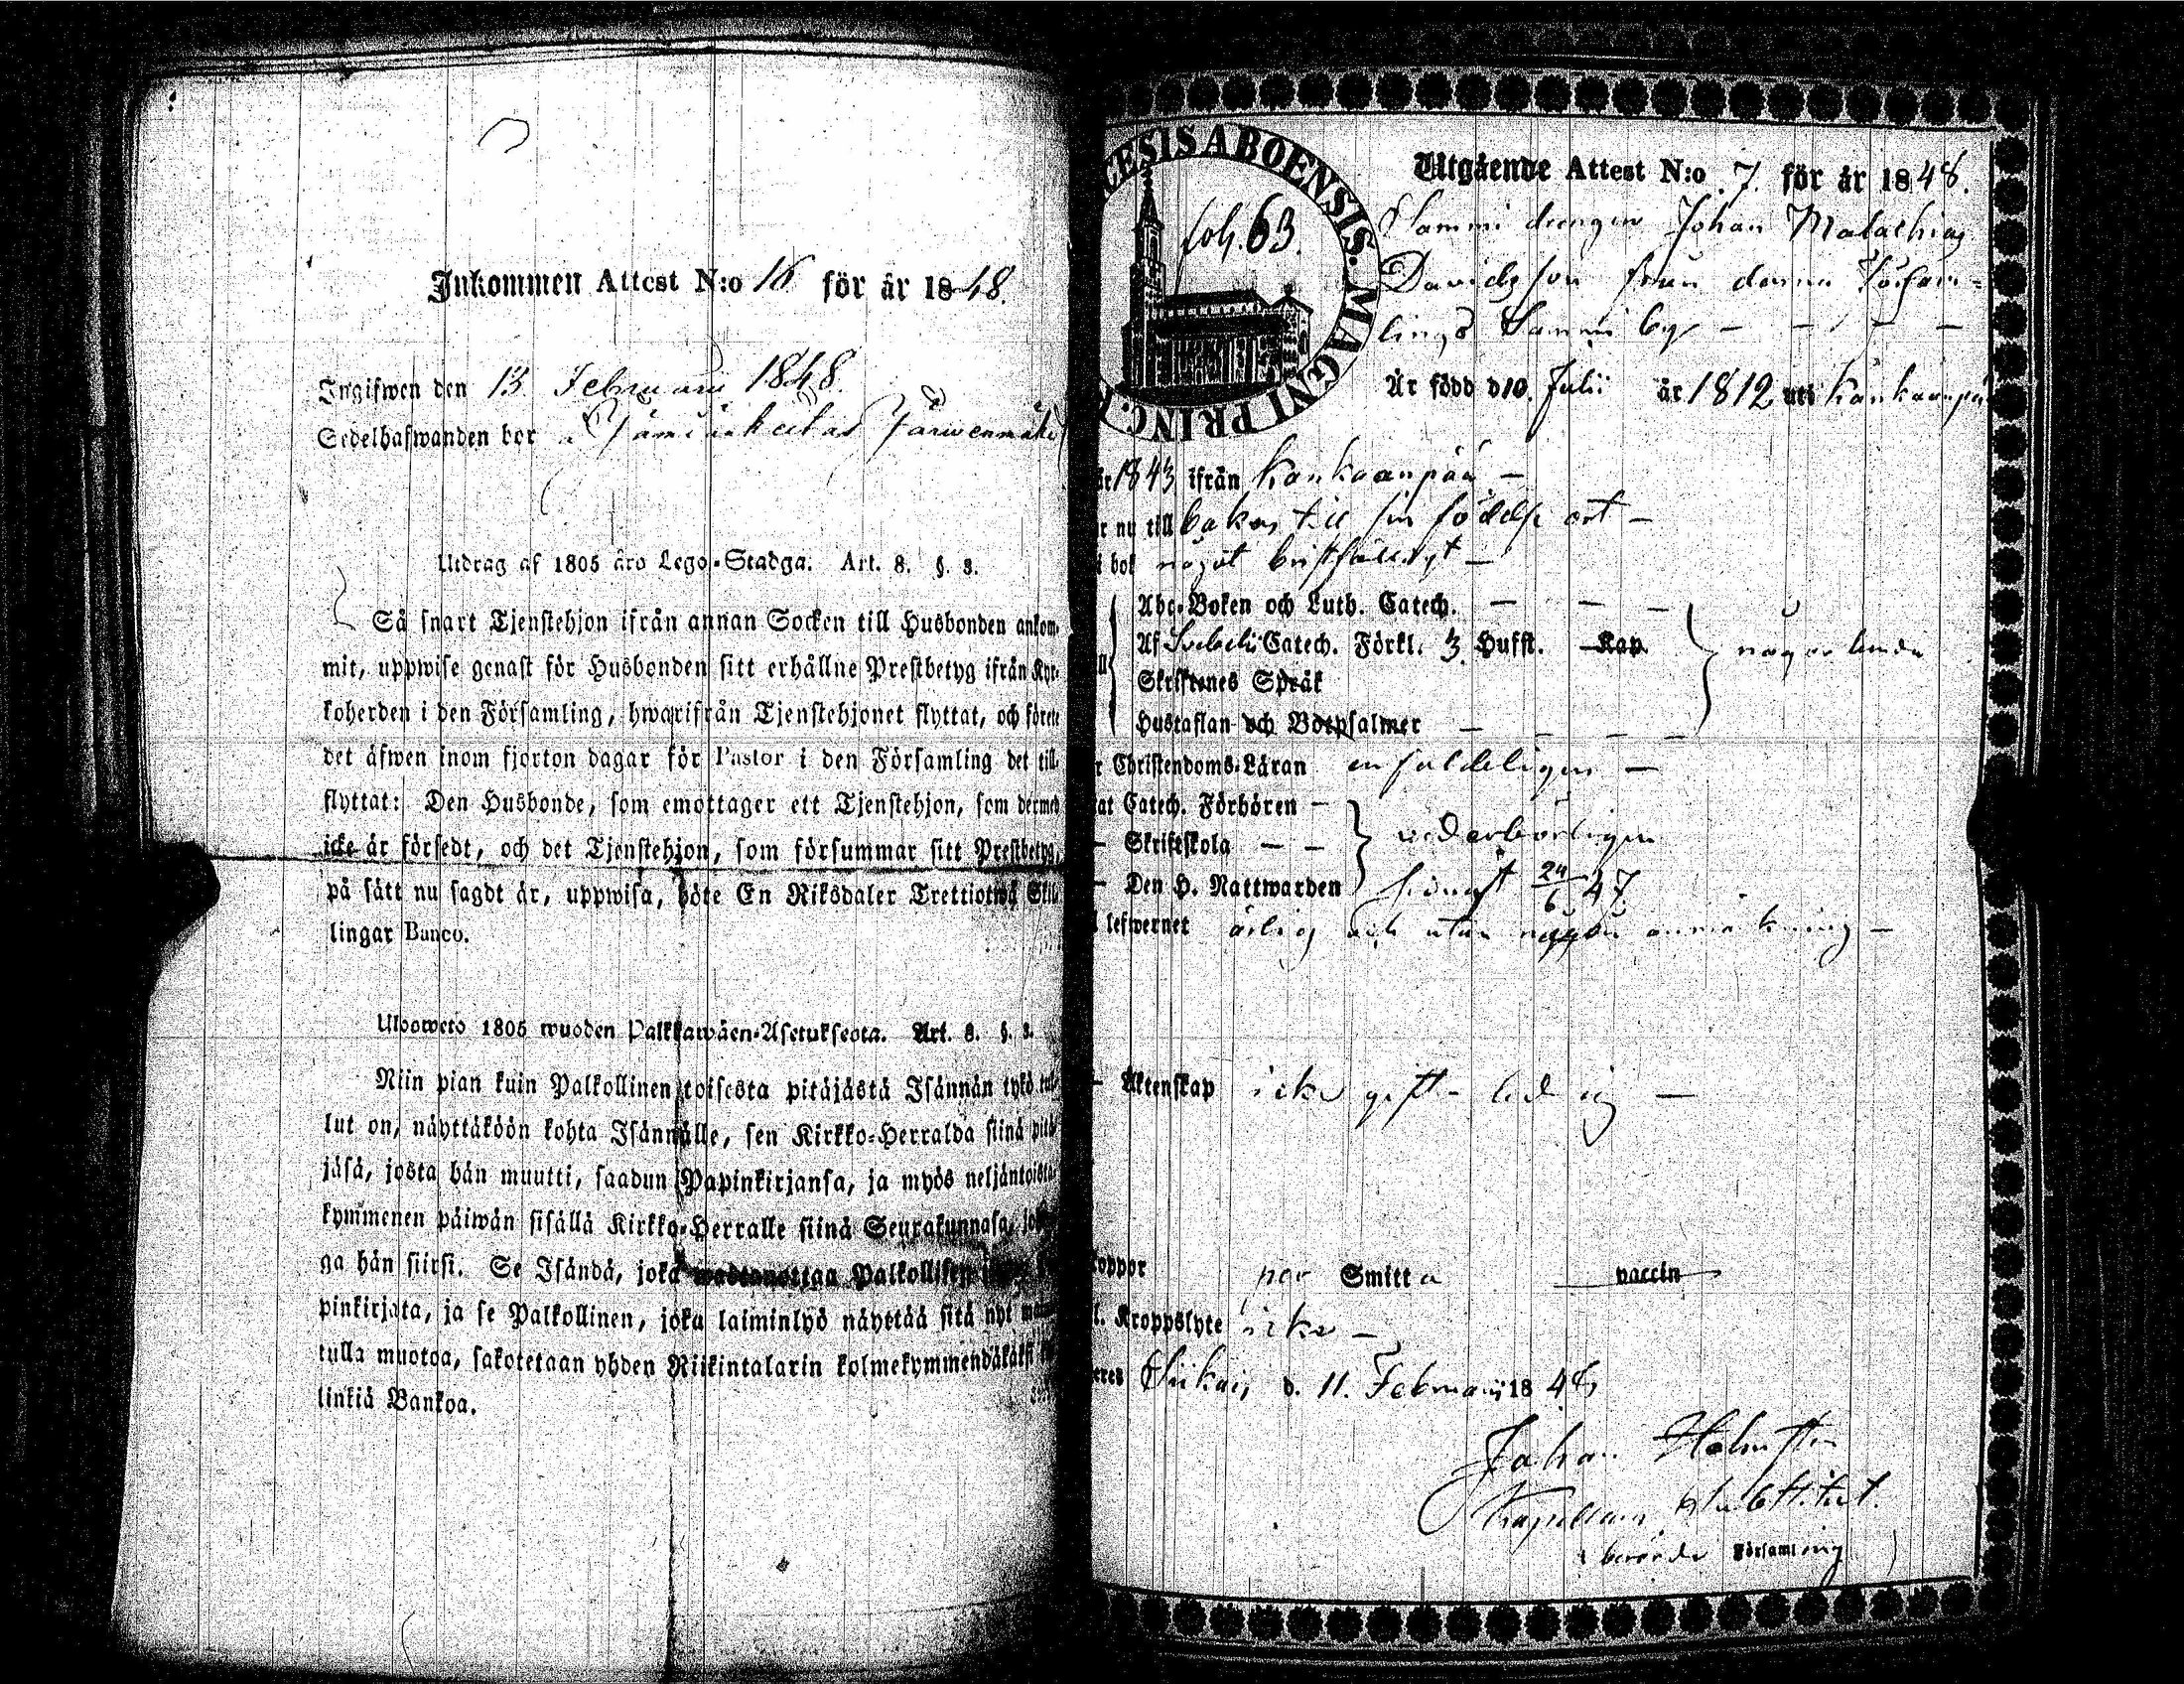 Inkommen Attest N:o 16 för år 1848.
Ingifwen den 13 Februarii 1848.
Sedelhafwanden bor
Utdrag af 1805 års Lego-Stadga. Art. 8. §. 8.
Så snart Tjenstehjon ifrån annan Socken till Husbonden ankom-
mit, uppwise genast för Husbonden sitt erhållne Prestbetyg ifrån Kyr-
koherden i den Församling, hwarifrån Tjenstehjonet flyttat, och förete
det äfwen inom fjorton dagar för Pastor i den Församling det till-
flyttat: Den Husbonde, som emottager ett Tjenstehjon, som dermed
icke är försedt, och det Tjenstehjon, som försummar sitt Prestbetyg,
på sätt nu sagdt är, uppwisa, böte En Riksdaler Trettiotwå Skil-
lingar Banco.
Ulosweto 1805 wuoden Palkkawäen-Asetuksesta. Art. 8. §. 8.
Niin pian kuin Palkollinen toisesta pitäjästä Isännän tykö tul-
lut on, näyttäköön kohta Isännälle, sen Kirkko-Herralda siinä pitä-
jäsä, josta hän muutti, saadun Papinkirjansa, ja myös neljäntoista-
kymmenen päiwän sisällä Kirkko-Herralle siinä Seurakunnasa, jo
ga hän siirsi. Se Isändä, joka wastanottaa Palkollisen
pinkirjata, ja se Palkollinen, joka laiminlyö näyttää sitä nyt
tulla muotoa, sakotetaan yhden Riikintalarin kolmekymmendäkaksi
linkiä Bankoa.
CESIS ABOENSIS. MAGNI PRINC.
fol. 63.
Utgående Attest N:o 7. för år 1848.
Sammi drengen Johan Malachias
Davidsson från denna Försam-
lings Sammi by
Är född d 10. Julii år 1812 uti Kankaanpää
år 1843 ifrån Kankaanpää
nu till bakas till sin födelse ort
bok något bristfälligt
Abc-Boken och Luth. Catech.
Af Svebelii Catech. Förkl. 3 Hufst. Kap. någorlunda
Skriftenes Språk
Hustaflan och Botpsalmer
Christendoms-Läran enfaldeligen
Catech. Förhören
Skriftskola wederbörligen
Den H. Nattwarden sidnast 24/6 47
lefwernet ärlig och utan någon anmärkning
Äktenskap icke gift ledig
koppor per Smitta vaccin
Kroppslyte icke
Siikais d. 11. Februarii 1848
Johan Holmsten
Kapellans Substitut.
berörde Församling